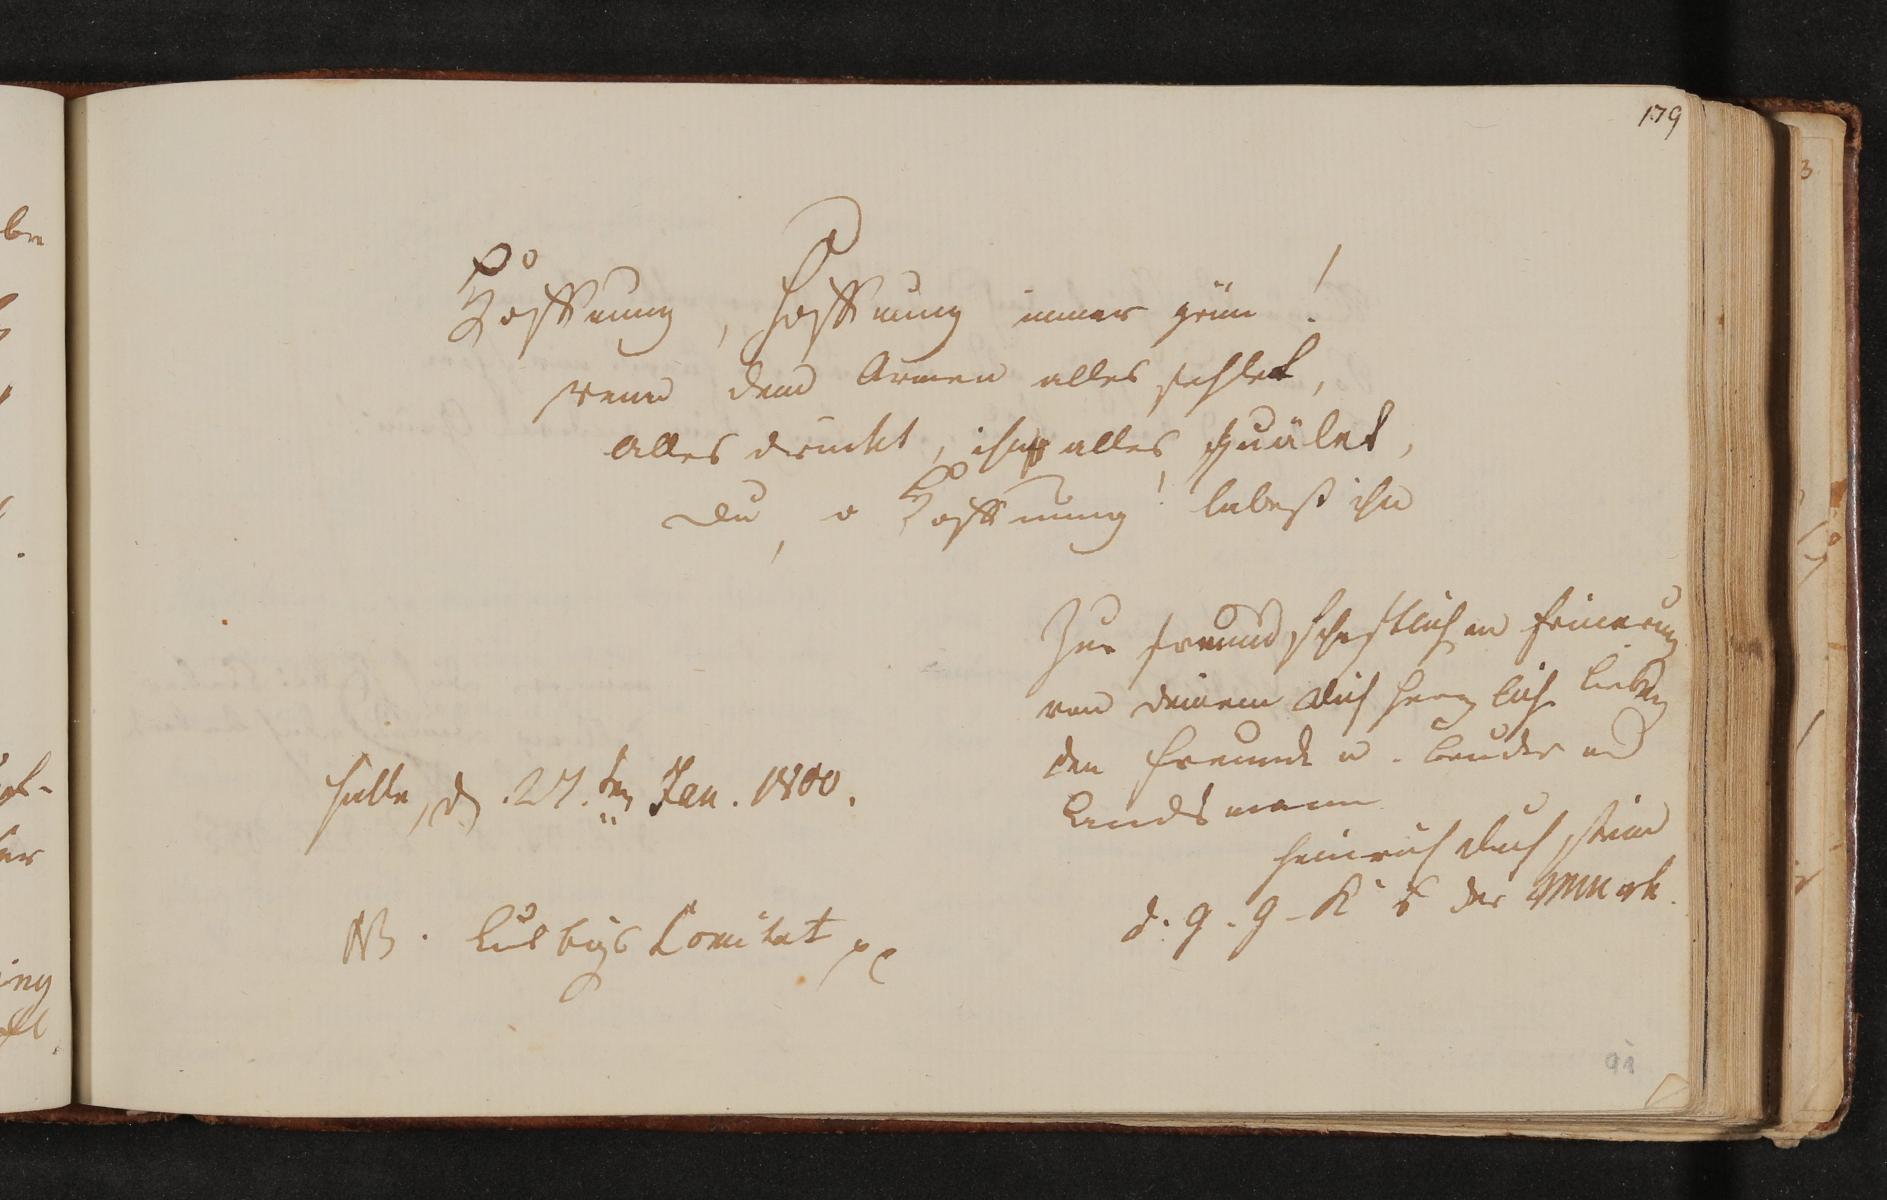 179
Hoffnung, Hoffnung immer grün!
wenn dem Armen alles fehlet,
alles drückt, ihn alles quälet,
Du, o Hoffnung! labest ihn
Zur freundschaftlichen Erinerung
von deinem dich herzlich lieben
den Freunde u. Bruder und
Landsmann
Heinrich Buchstein
d. g. G. K. B. aus der Mark.
Halle, d. 27.ten Jan. 1800.
NB. Comitat pp
91
3